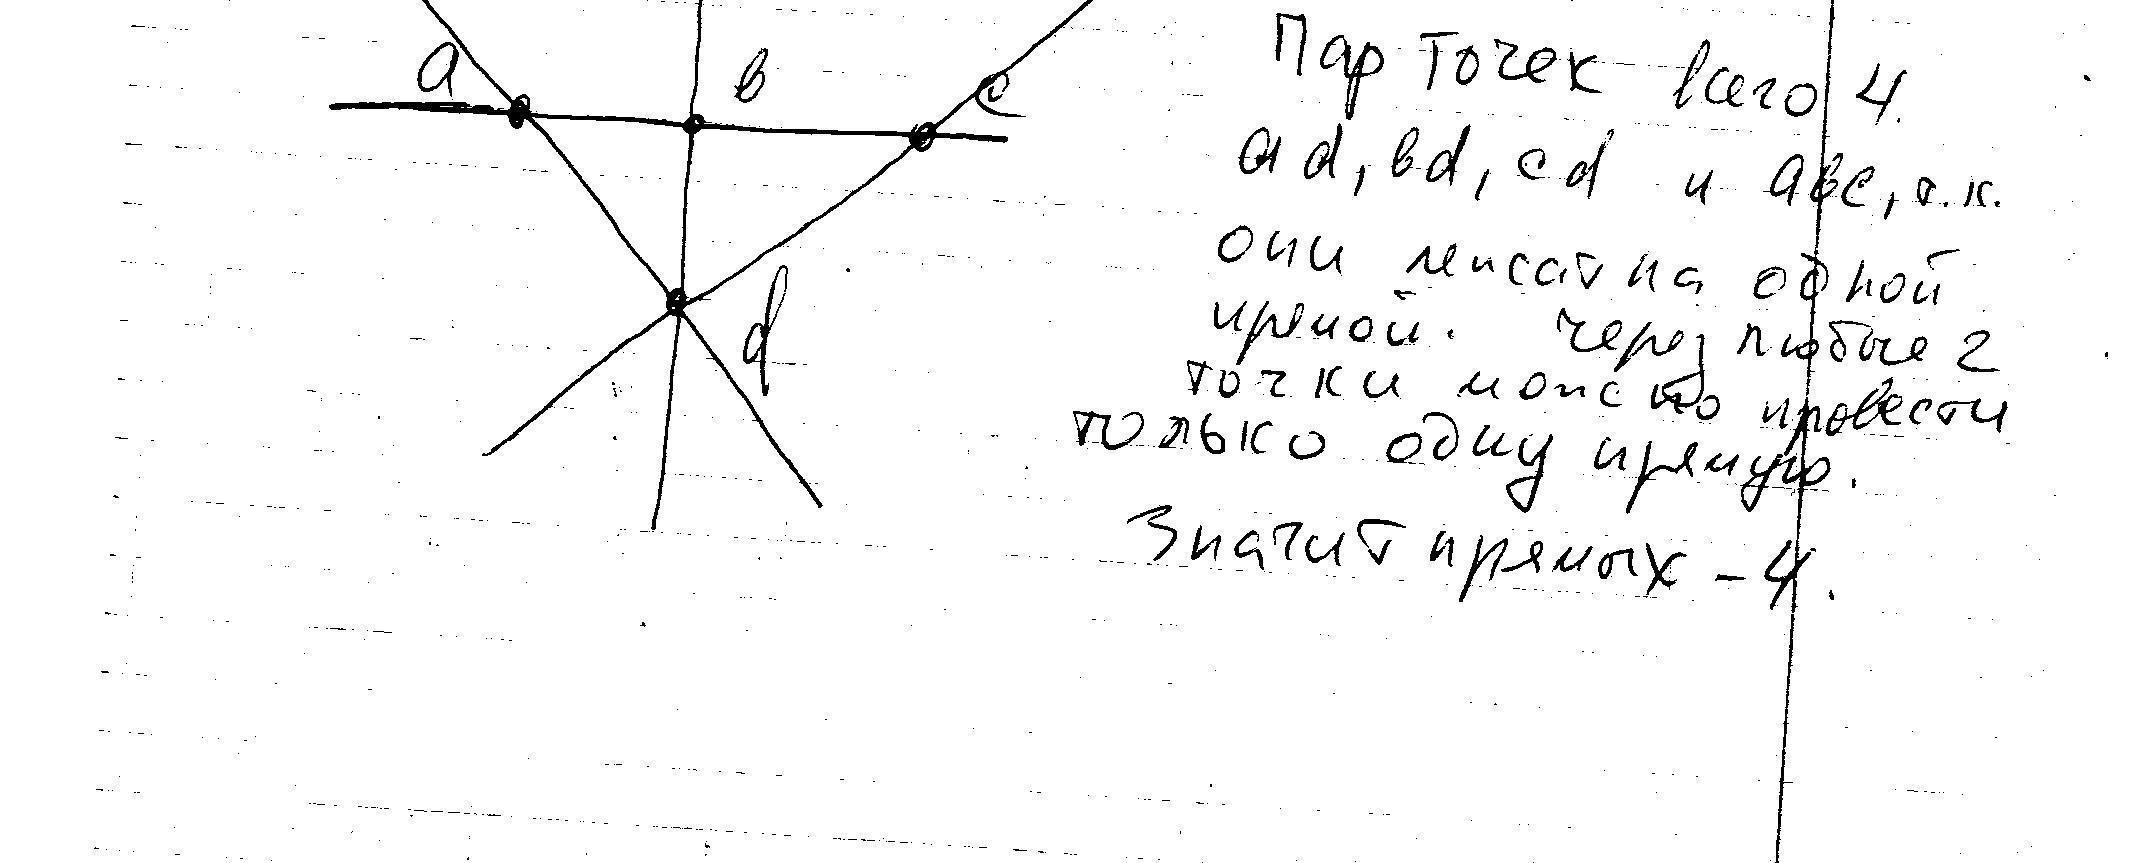 a в c
d
Пар точек всего 4.
ad, вd, cd и авс, т.к.
они лежат на одной
прямой. через любые 2
точки можно провести
только одну прямую.
Значит прямых – 4.